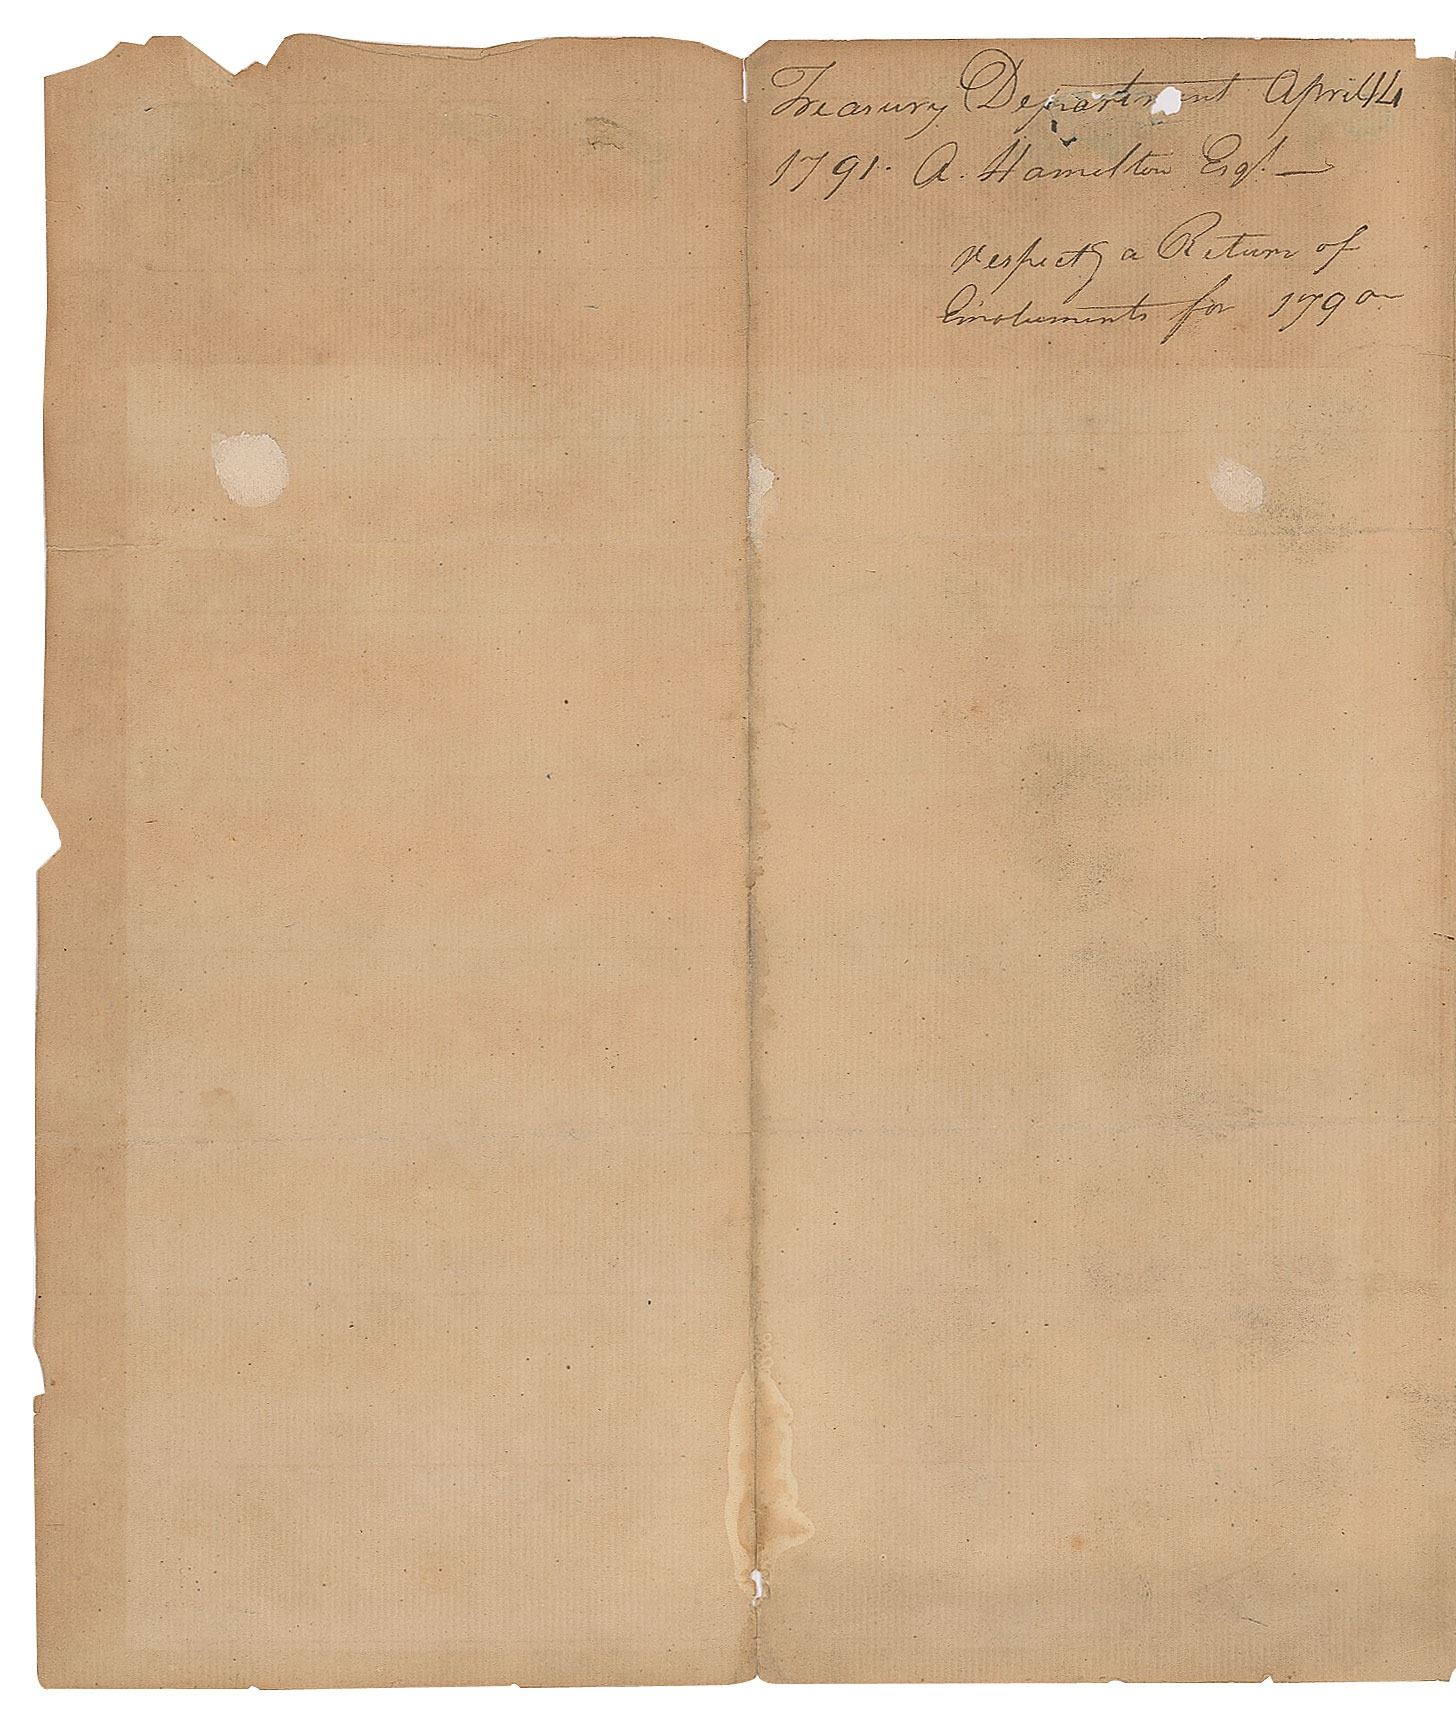 Treasury Department April 14
1791. A. Hamelton Esqr. —
respectg a Return of
Emoluments for 1790